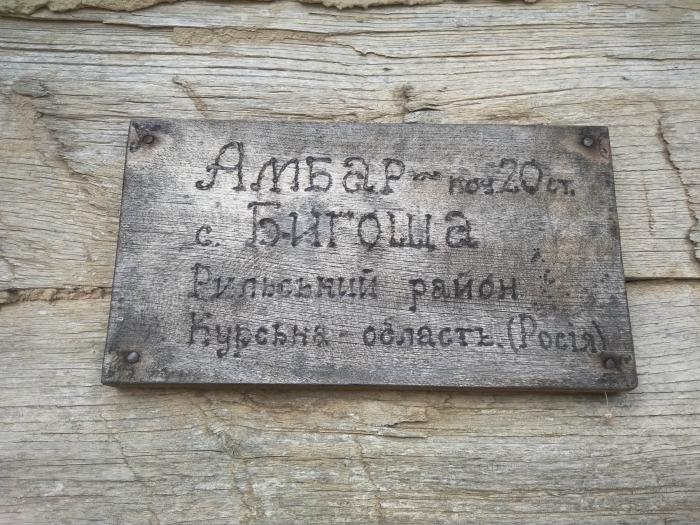 Амбар ~ поч 20 ст.
с. Бигоща
Рильський район
Курська - область. (Росія)